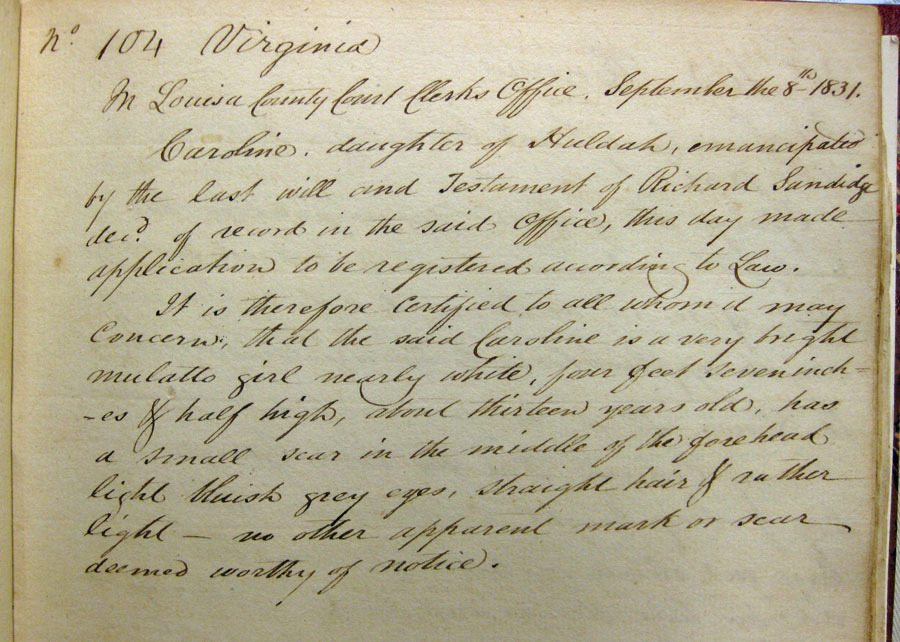 No. 104 Virginia
In Louisa County Court Clerks Office. September the 8th 1831.
Caroline, daughter of Huldah, emancipated
by the last will and Testament of Richard Sandidge
decd. of record in the said Office, this day made
application to be registered according to Law.
It is therefore Certified to all whom it may
Concern, that the said Caroline is a very bright
mulatto girl nearly white, four feet seven inch-
-es & half high, about thirteen years old, has
a small scar in the middle of the forehead
light bluish grey eyes, straight hair & rather
light — no other apparent mark or scar
deemed worthy of notice.